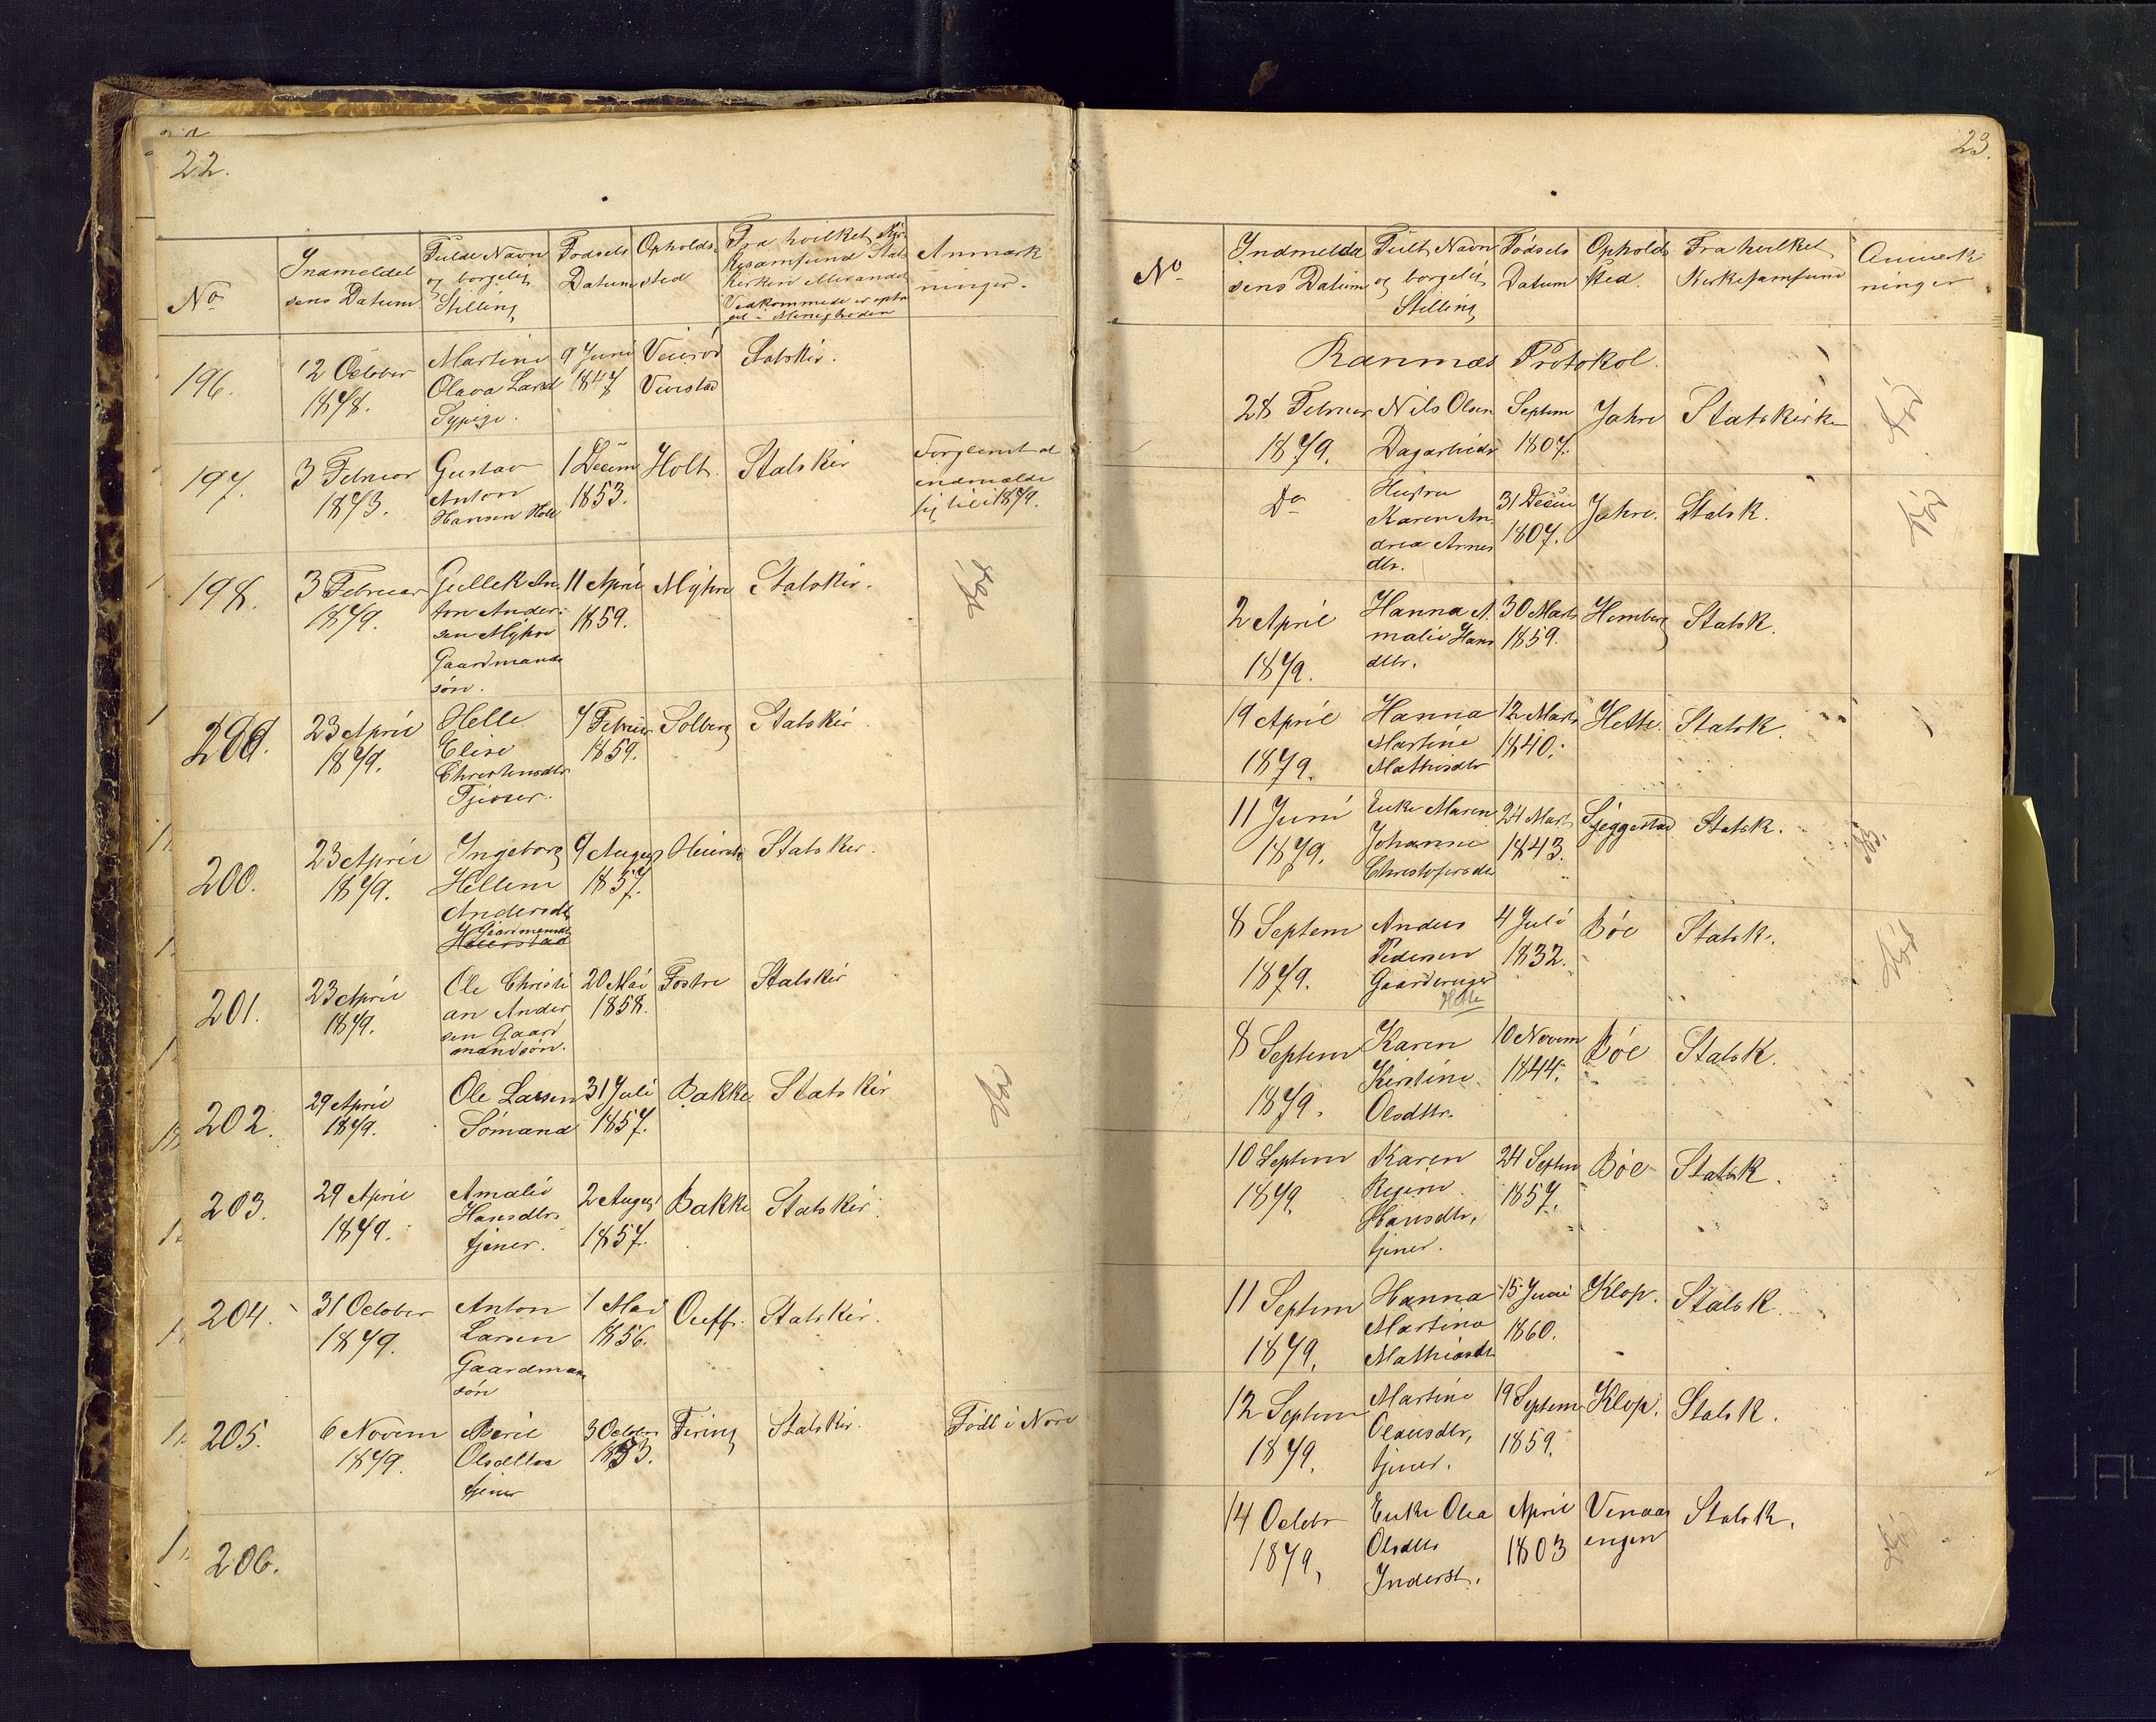 22.
No
Indmeldel
sens Datum
Fulde Navn
og borgelig
Stilling
Fødsels
Datum
Opholds
sted
Fra hvilket Kir-
kesamfund Stats
Kirken eller andet
Vedkommede er opta
get i Menigheden
Anmærk
ninger.
196.
12 October
1878.
Martine
Olava Land
Sypige.
9 Juni
1847
Veierød
Vivestad
Statskir.
197.
3 Februar
1873.
Gustav
Anton
Hansen Holt
1 Decem
1853.
Holt.
Statskir
Forglemt at
indmelde
sig til i 1879.
198.
3 Februar
1879.
Gullek An
ton Ander-
sen Myhre
Gaardmands
søn.
11 April
1859.
Myhre
Statskir.
Død
23 April
1879.
Helle
Elise
Christensdtr
Tjener.
7 Februar
1859.
Solberg
Statskir.
200.
23 April
1879.
Ingeborg
Hellene
Andersdtr
Gaardmands
9 August
1857.
Statskir.
201.
23 April
1879.
Ole Christi
an Ander
sen Gaard
mandsøn.
20 Mai
1858.
Fostre
Statskir
202.
29 April
1879.
Ole Larsen
Sømand
31 Juli
1857.
Bakke
Statskir
203.
29 April
1879.
Amalie
Hansdtr
tjener.
2 August
1857.
Bakke
Statskir.
204.
31 October
1879.
Anton
Larsen
Gaardman
søn
1 Mai
1856.
Statskir.
205.
6 Novem
1879.
Berit
Olsdtter
tjener
3 October
Firing
Statskir.
Født i Nore
206.
23.
No
Indmeldel
sens Datum
Fult Navn
og borgelig
Stilling
Fødsels
Datum
Opholds
sted.
Fra hvilket
Kirkesamfund
Anmærk
ninger
Ramnæs Protokol.
28 Februar
1879.
Nils Olsen
Dagarbeidr
Septem
1807.
Jahre
Statskirken
Død
Do
Hustru
Karen An
drea Arnes
dtr.
31 Decem
1807.
Jahre.
Statsk.
Død
2 April
1879.
Hanna A.
malie Hans
dtr.
30 Marts
1859.
Hemberg
Statsk.
19 April
1879.
Hanna
Martine
Mathisdtr
12 Marts
1840.
Hette.
Statsk.
11 Juni
1879.
Enke Maren
Johanne
Christofersdtr
24 Marts
1843.
Sjeggestad
Statsk.
8 Septem
1879.
Anders
Pedersen
Gaardbruger
Hette
4 Juli
1832.
Bøe
Statsk.
Død
8 Septem
1879.
Karen
Kirstine
Olsdttr.
10 Novem
1844.
Bøe
Statsk.
10 Septem
1879.
Karen
Regine
Hansdtr,
tjener.
24 Septem
1857.
Bøe
Statsk.
11 Septem
1879.
Hanna
Martina
Mathiasdtr
15 Juni
1860.
Klop.
Statsk.
12 Septem
1879.
Martine
Olausdtr,
tjener.
19 Septem
1859.
Klop.
Statsk.
14 Octobr
1879,
Enke Olea
Olsdttr
Inderst.
April
1803
Venaas
engen
Statsk.
Død